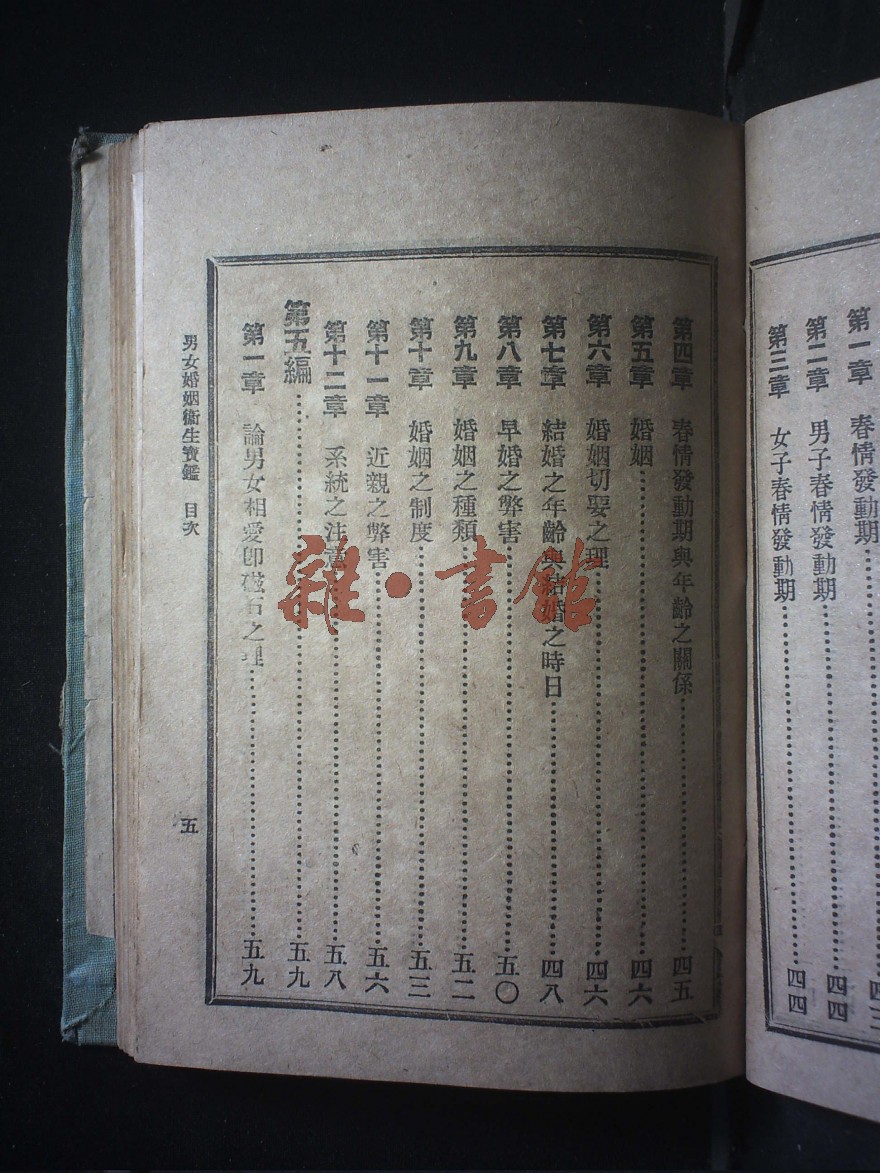 第一章 春情發動期
第二章 男子春情發動期……四四
第三章 女子春情發動期……四四
第四章 春情發動期與年齡之關係……四五
第五章 婚姻……四六
第六章 婚姻切要之理……四六
第七章 結婚之年齡與結婚之時日……四八
第八章 早婚之弊害……五〇
第九章 婚姻之種類……五二
第十章 婚姻之制度……五三
第十一章 近親之弊害……五六
第十二章 系統之注意……五八
第五編……五九
第一章 論男女相愛卽磁石之理……五九
男女婚姻衞生寶鑑 目次
五
雜·書館